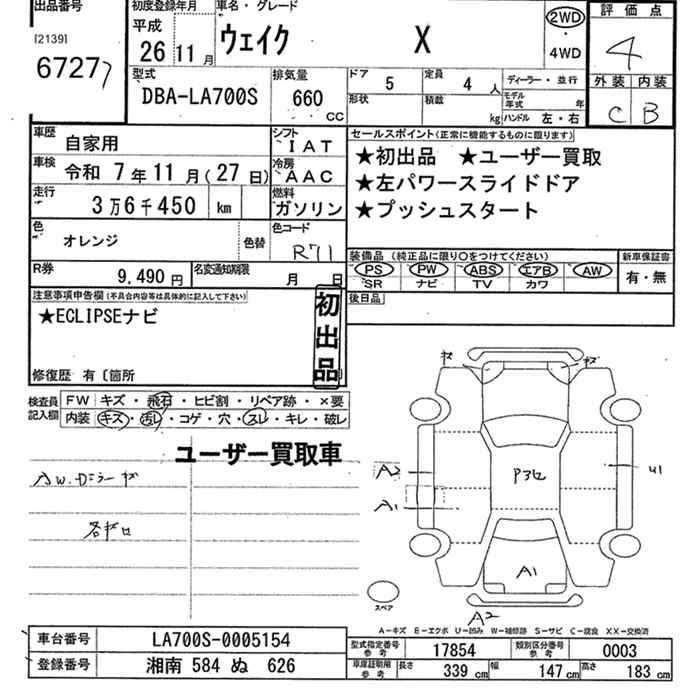 出品番号
[2139]
6727
初度登録年月
平成
26 11月
車名・グレード
ウェイク X
2WD
4WD
評価点
4
外装 内装
C B
型式
DBA-LA700S
排気量
660 CC
ドア 5
定員 4人
形状
積載 kg
ディーラー・並行
モデル年式 年
ハンドル 左・右
車歴 自家用
シフト IAT
車検 令和 7年11月(27日)
冷房 AAC
走行 3万6千450 km
燃料 ガソリン
色 オレンジ 色替
色コード R71
R券 9,490円
名変通知期限 月 日
セールスポイント(正常に機能するものに限ります)
★初出品 ★ユーザー買取
★左パワースライドドア
★プッシュスタート
装備品(純正品に限り○をつけてください)
新車保証書
PS PW ABS エアB AW
SR ナビ TV カワ
有・無
後日品
注意事項申告欄(不具合内容等は具体的に記入して下さい)
★ECLIPSEナビ
初出品
修復歴 有〔箇所
検査員記入欄
FW キズ・飛石・ヒビ割・リペア跡・×要
内装 キズ・汚レ・コゲ・穴・スレ・キレ・破レ
ユーザー買取車
AW.Dミラーキズ
A2
A1
U1
A1
A2
スペア
A-キズ E-エクボ U-凹み W-補修跡 S-サビ C-腐食 XX-交換済
車台番号 LA700S-0005154
登録番号 湘南 584 ぬ 626
型式指定番号 参考 17854
類別区分番号 参考 0003
車庫証明用 参考 長さ 339 cm 幅 147 cm 高さ 183 cm